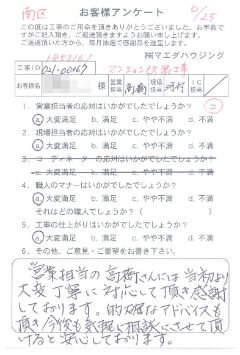 南区
6/25
お客様アンケート
この度は工事のご用命を頂きありがとうございました。お手数で
すがご記入頂き、ご返送頂きますようお願い申し上げます。
ご返送頂いた方から、毎月抽選で感謝品を進呈します。
㈱マエダハウジング
工事ID
マンション改装工事
お客様名
様
営業担当
高橋
現場担当
河村
IC担当
1. 営業担当者の応対はいかがでしたでしょうか?
a.大変満足 b.満足 c.やや不満 d.不満
2. 現場担当者の応対はいかがでしたでしょうか?
a.大変満足 b.満足 c.やや不満 d.不満
3. コーディネーターの応対はいかがでしたでしょうか?
a.大変満足 b.満足 c.やや不満 d.不満
4. 職人のマナーはいかがでしたでしょうか?
a.大変満足 b.満足 c.やや不満 d.不満
それはどの職人でしょうか?( )
5. 工事の仕上がりはいかがでしたでしょうか?
a.大変満足 b.満足 c.やや不満 d.不満
6. その他、ご意見・ご要望をお書き下さい。
営業担当の高橋さんには当初より
大変丁寧に対応して頂き感謝
しております。的確なアドバイスも
頂き今後も気軽に相談にさせて頂
けると安心しております。